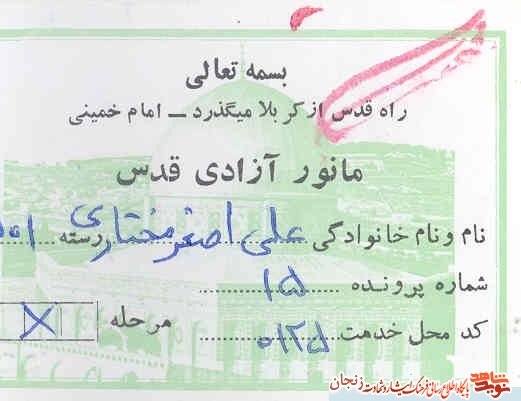 بسمه تعالی
راه قدس از کربلا میگذرد ــ امام خمینی
مانور آزادی قدس
نام و نام خانوادگی علی اصغر مختاری رسته
شماره پرونده ۱۵
کد محل خدمت ۰۱۲۵
مرحله X
نوید شاهد
پایگاه اطلاع رسانی فرهنگ ایثار و شهادت زنجان